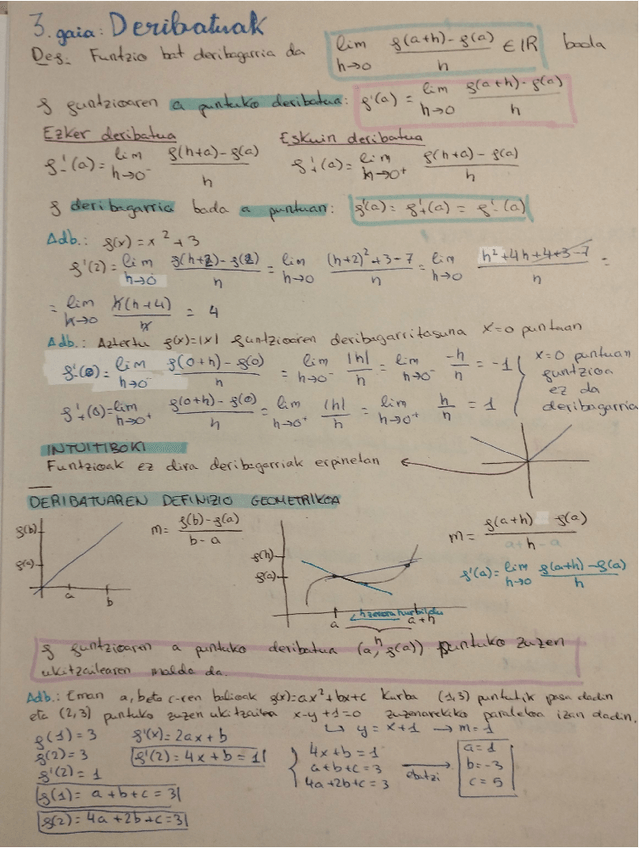 3. gaia: Deribatuak
Def.- Funtzio bat deribagarria da lim h→0 f(a+h)-f(a)/h ∈ IR bada
f funtzioaren a puntuko deribatua: f'(a) = lim h→0 f(a+h)-f(a)/h
Ezker deribatua Eskuin deribatua
f'₋(a) = lim h→0⁻ f(h+a)-f(a)/h f'₊(a) = lim h→0⁺ f(h+a)-f(a)/h
f deribagarria bada a puntuan: f'(a) = f'₊(a) = f'₋(a)
Adb.: f(x) = x² + 3
f'(2) = lim h→0 f(h+2)-f(2)/h = lim h→0 (h+2)²+3-7/h = lim h→0 h²+4h+4+3-7/h =
= lim h→0 h(h+4)/h = 4
Adb.: Aztertu f(x)=|x| funtzioaren deribagarritasuna x=0 puntuan
f'₋(0) = lim h→0⁻ f(0+h)-f(0)/h = lim h→0⁻ |h|/h = lim h→0⁻ -h/h = -1
f'₊(0) = lim h→0⁺ f(0+h)-f(0)/h = lim h→0⁺ |h|/h = lim h→0⁺ h/h = 1
x=0 puntuan
funtzioa
ez da
deribagarria
INTUITIBOKI
Funtzioak ez dira deribagarriak erpinetan
DERIBATUAREN DEFINIZIO GEOMETRIKOA
f(b)
f(a)
a b
m = f(b)-f(a)/b-a
f(h)
f(a)
a a+h
h zerora hurbildu
h
m = f(a+h) f(a)/a+h-a
f'(a) = lim h→0 f(a+h)-f(a)/h
f funtzioaren a puntuko deribatua (a, f(a)) puntuko zuzen
ukitzailearen malda da.
Adb.: Eman a, b eta c-ren balioak f(x)=ax²+bx+c kurba (1,3) puntutik pasa dadin
eta (2,3) puntuko zuzen ukitzailea x-y+1=0 zuzenarekiko paraleloa izan dadin.
↳ y = x+1 → m=1
f(1) = 3 f'(x) = 2ax+b
f(2) = 3 f'(2) = 4x+b = 1
f'(2) = 1
f(1) = a+b+c = 3
f(2) = 4a+2b+c = 3
4x+b = 1
a+b+c = 3
4a+2b+c = 3
ebatzi
a = 1
b = -3
c = 5